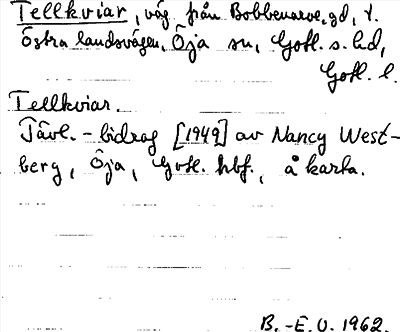 Tellkviar, väg från Bobbenarve, gd, t.
östra landsvägen, Öja sn, Gotl. s. hd,
Gotl. l.
Tellkviar.
Tävl.-bidrag [1949] av Nancy West-
berg, Öja, Gotl. hbf., å karta.
B.-E. O. 1962.